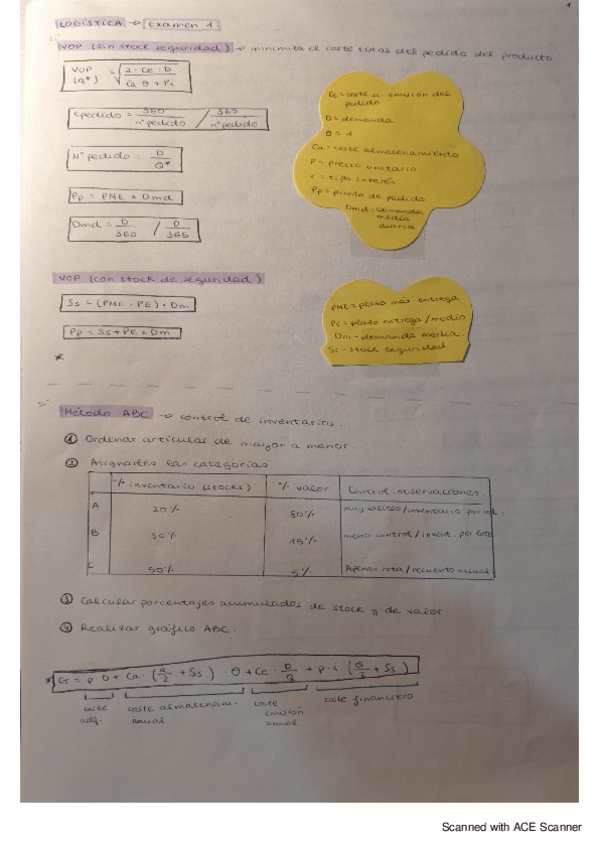 1
LOGÍSTICA → Examen 1
VOP (sin stock seguridad) → minimiza el coste total del pedido del producto.
VOP (Q*) = √(2 · Ce · D / Ca · θ + P · i)
tpedido = 360 / nº pedido / 365 / nº pedido
Nº pedido = D / Q*
Pp = PME × Dmd
Dmd = D / 360 / D / 365
Ce = coste u. emisión del pedido
D = demanda
θ = 1
Ca = coste almacenamiento
P = precio unitario
i = tipo interés.
Pp = punto de pedido
Dmd = demanda media diaria
VOP (con stock de seguridad)
Ss = (PME - PE) · Dm
Pp = Ss + PE × Dm
*
PME = plazo máx entrega
PE = plazo entrega/medio
Dm = demanda media
Ss = stock seguridad
Método ABC → control de inventarios.
① Ordenar artículos de mayor a menor.
② Asignarles las categorías
% inventario (stocks) % valor Control. observaciones.
A 20% 80% muy valioso/inventario por ud.
B 30% 15% menos control/invent. por lote
C 50% 5% Apenas rota/recuento visual
③ Calcular porcentajes acumulados de stock y de valor.
④ Realizar gráfico ABC.
* CT = P · D + Ca · (Q/2 + Ss) · θ + Ce · D/Q + P · i (Q/2 + Ss)
coste adq. coste almacenam. anual coste emisión anual coste financiero
Scanned with ACE Scanner